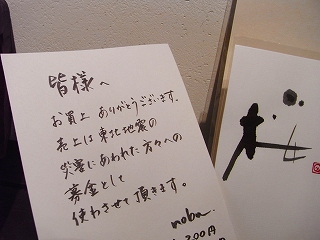 皆様へ
お買上 ありがとうございます。
売上は東北地震の
災害にあわれた方々への
募金として
使わさせて頂きます。
noba
200円